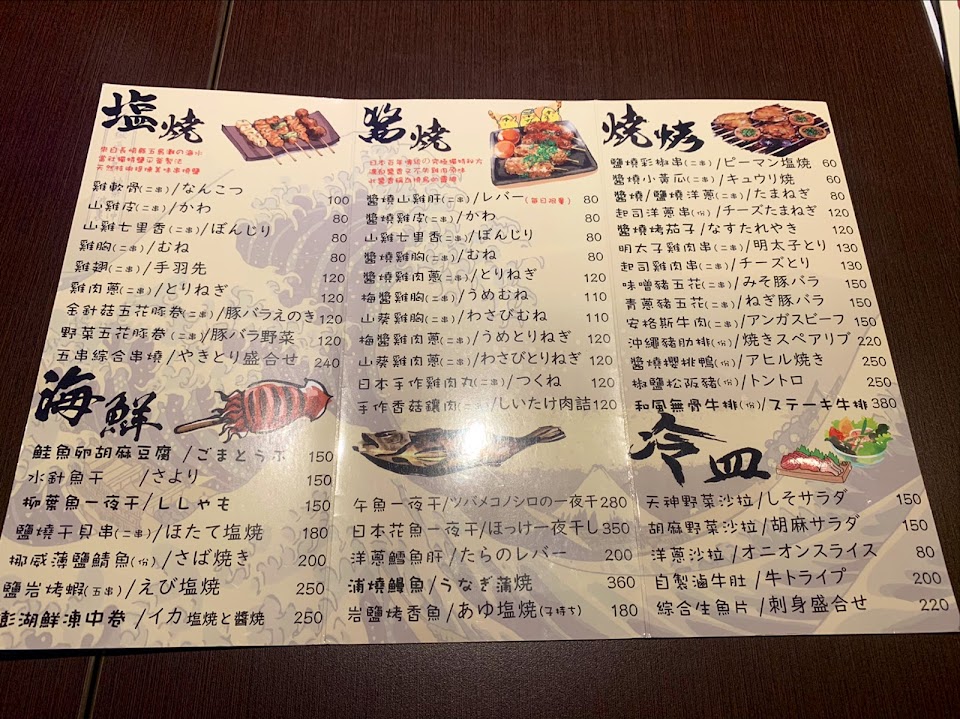 塩燒
來自長崎縣五島灘の海水
當社獨特鹽
天然
雞軟骨(二串)/なんこつ 100
山雞皮(二串)/かわ 80
山雞七里香(二串)/ぼんじり 80
雞胸(二串)/むね 80
雞翅(二串)/手羽先 120
雞肉蔥(二串)/とりねぎ 120
金針菇五花豚卷(二串)/豚バラえのき 120
野菜五花豚卷(二串)/豚バラ野菜 120
五串綜合串燒/やきとり盛合せ 240
海鮮
鮭魚卵胡麻豆腐/ごまとうふ 150
水針魚干/さより 150
柳葉魚一夜干/ししゃも 150
鹽燒干貝串(二串)/ほたて塩焼 180
挪威薄鹽鯖魚(份)/さば焼き 200
鹽岩烤蝦(五串)/えび塩焼 250
澎湖鮮凍中卷/イカ塩焼と醬焼 250
醬燒
日本百年傳統の究極獨特秘方
醬燒山雞肝(二串)/レバー(每日限量) 80
醬燒雞皮(二串)/かわ 80
山雞七里香(二串)/ぼんじり 80
醬燒雞胸(二串)/むね 80
醬燒雞肉蔥(二串)/とりねぎ 120
梅醬雞胸(二串)/うめむね 110
山葵雞胸(二串)/わさびむね 110
梅醬雞肉蔥(二串)/うめとりねぎ 120
山葵雞肉蔥(二串)/わさびとりねぎ 120
日本手作雞肉丸(二串)/つくね 120
手作香菇鑲肉(二串)/しいたけ肉詰 120
午魚一夜干/ツバメコノシロの一夜干 280
日本花魚一夜干/ほっけ一夜干し 350
洋蔥鱈魚肝/たらのレバー 200
浦燒鰻魚/うなぎ蒲焼 360
岩鹽烤香魚/あゆ塩焼(子持ち) 180
燒烤
鹽燒彩椒串(二串)/ピーマン塩焼 60
醬燒小黃瓜(二串)/キュウリ焼 60
醬燒/鹽燒洋蔥(二串)/たまねぎ 80
起司洋蔥串(份)/チーズたまねぎ 120
醬燒烤茄子/なすたれやき 120
明太子雞肉串(二串)/明太子とり 130
起司雞肉串(二串)/チーズとり 130
味噌豬五花(二串)/みそ豚バラ 150
青蔥豬五花(二串)/ねぎ豚バラ 150
安格斯牛肉(二串)/アンガスビーフ 150
沖繩豬肋排(份)/焼きスペアリブ 220
醬燒櫻桃鴨(份)/アヒル焼き 250
椒鹽松阪豬(份)/トントロ 250
和風無骨牛排(份)/ステーキ牛排 380
冷皿
天神野菜沙拉/しそサラダ 150
胡麻野菜沙拉/胡麻サラダ 150
洋蔥沙拉/オニオンスライス 80
自製滷牛肚/牛トライプ 200
綜合生魚片/刺身盛合せ 220